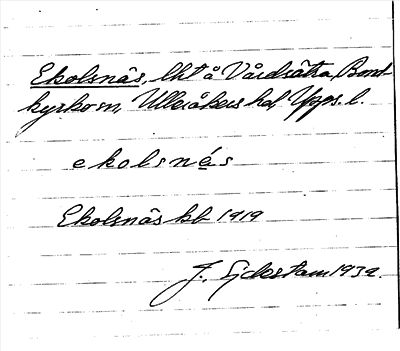 Ekolsnäs, lht å Vårdsätra, Bond-
kyrko sn, Ulleråkers hd, Upps. l.
ekolsnés
Ekolsnäs kb 1919
J. 1932.